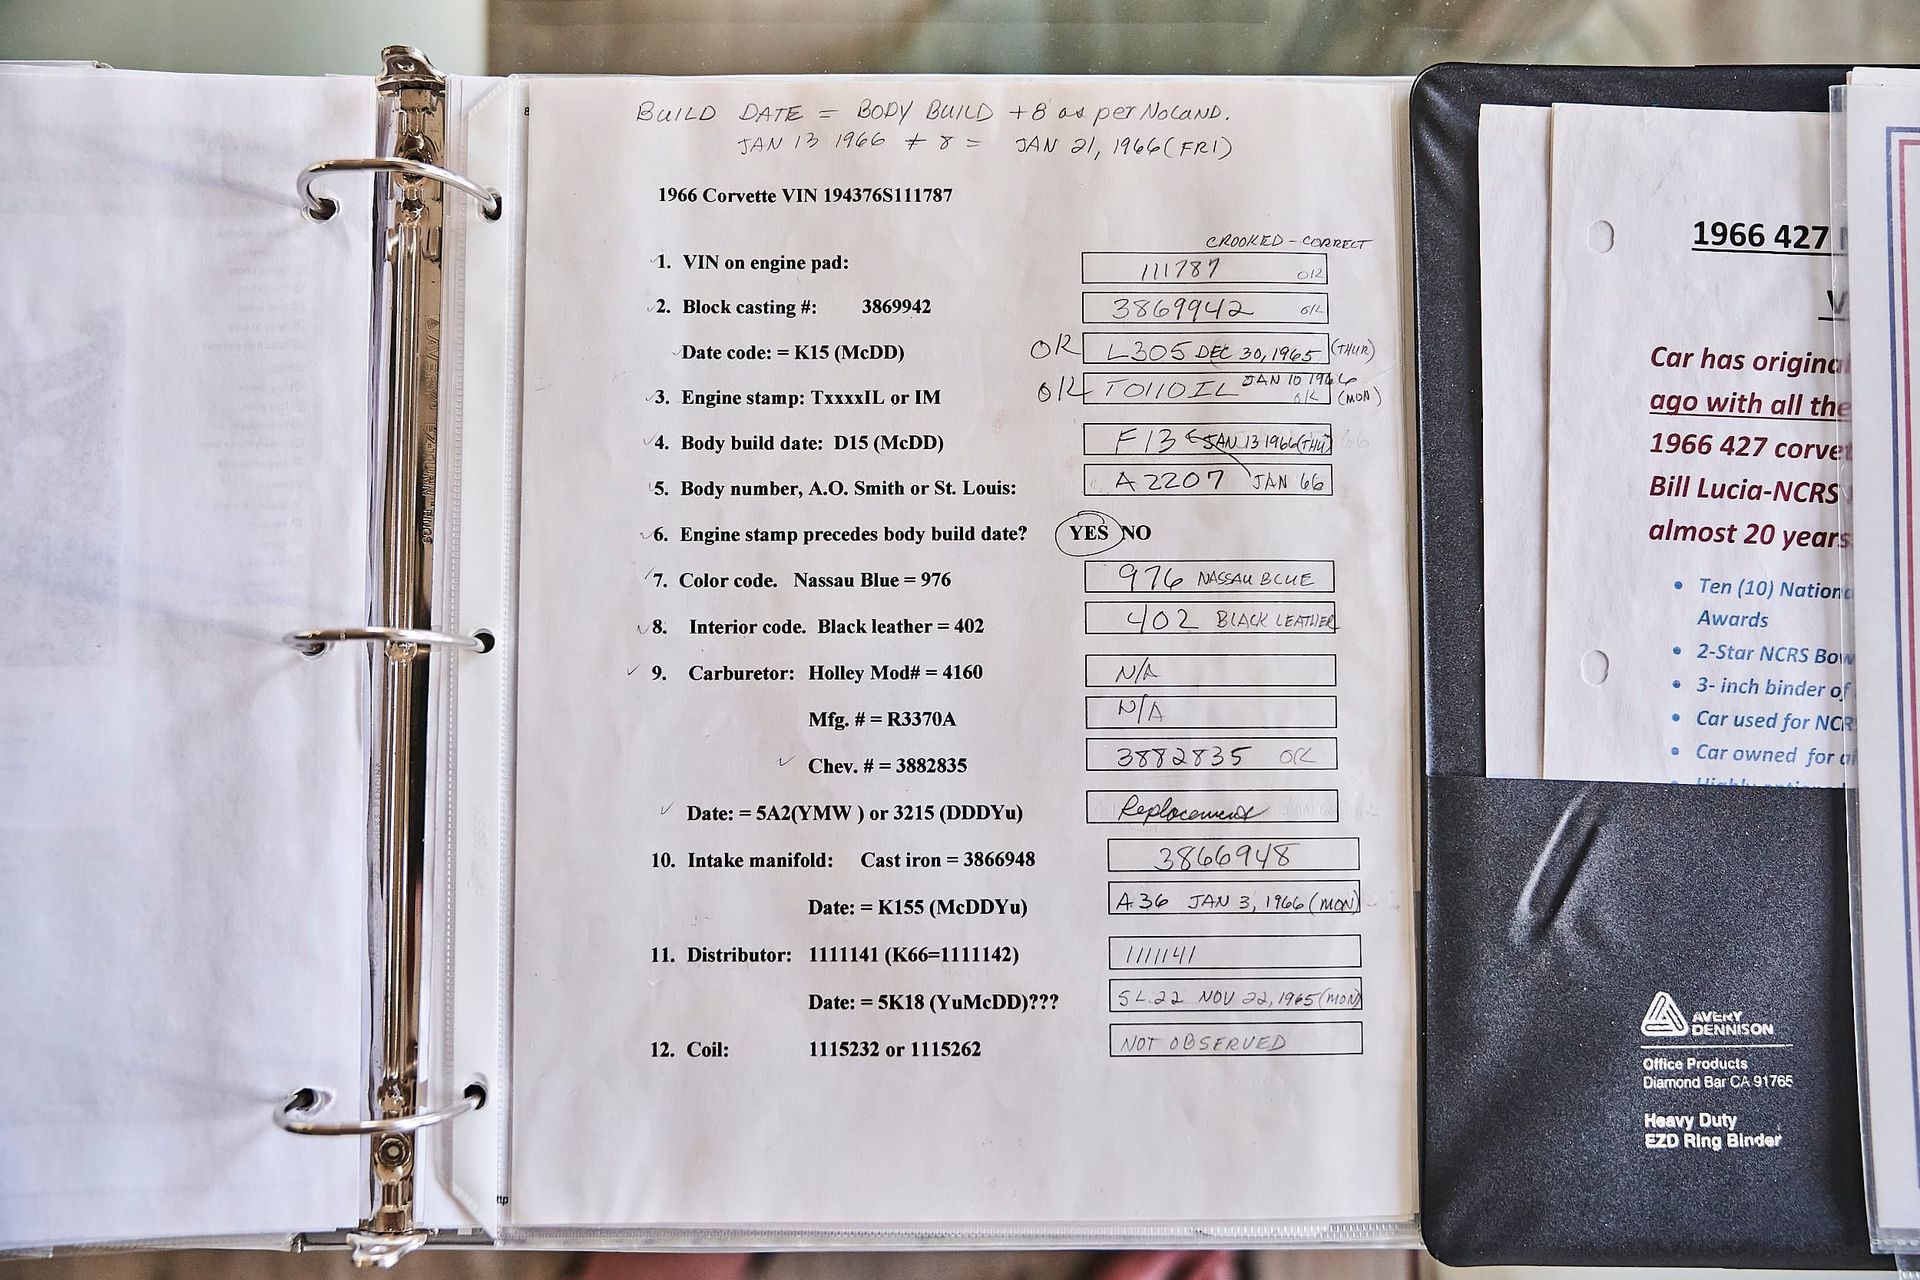 BUILD DATE = BODY BUILD +8 as per NOLAND.
JAN 13 1966 + 8 = JAN 21, 1966 (FRI)
1966 Corvette VIN 194376S111787
CROOKED - CORRECT
1. VIN on engine pad: 111787 OK
2. Block casting #: 3869942 3869942 OK
Date code: = K15 (McDD) OK L305 DEC 30, 1965 (THUR)
3. Engine stamp: TxxxxIL or IM OK T0110IL JAN 10 1966 OK (MON)
4. Body build date: D15 (McDD) F13 JAN 13 1966 (THU)
5. Body number, A.O. Smith or St. Louis: A2207 JAN 66
6. Engine stamp precedes body build date? YES NO
7. Color code. Nassau Blue = 976 976 NASSAU BLUE
8. Interior code. Black leather = 402 402 BLACK LEATHER
9. Carburetor: Holley Mod# = 4160 N/A
Mfg. # = R3370A N/A
Chev. # = 3882835 3882835 OK
Date: = 5A2(YMW ) or 3215 (DDDYu) Replacement
10. Intake manifold: Cast iron = 3866948 3866948
Date: = K155 (McDDYu) A 36 JAN 3, 1966 (MON)
11. Distributor: 1111141 (K66=1111142) 1111141
Date: = 5K18 (YuMcDD)??? 5L22 NOV 22, 1965 (MON)
12. Coil: 1115232 or 1115262 NOT OBSERVED
1966 427
Car has origina
ago with all the
1966 427 corve
Bill Lucia-NCRS
almost 20 years
• Ten (10) Nation
Awards
• 2-Star NCRS Bow
• 3- inch binder of
• Car used for NCR
• Car owned for
AVERY
DENNISON
Office Products
Diamond Bar CA 91765
Heavy Duty
EZD Ring Binder